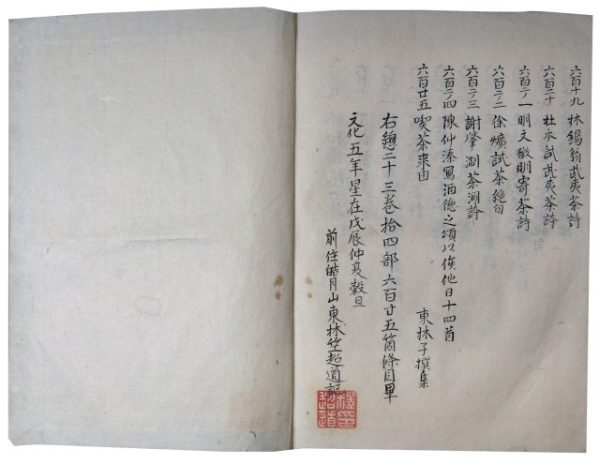 六百十九 林錫翁武夷茶詩
六百二十 杜本試武夷茶詩
六百廿一 明文徴明寄茶詩
六百廿二 徐爌試茶絶句
六百廿三 謝肇淛茶洞詩
六百廿四 陳仲溱寫酒徳之頌以俟他日十四首
六百廿五 喫茶来由
東林子撰集
右總二十三巻拾四部六百廿五箇條目畢
文化五年星在戊辰仲夏穀旦
前住皓月山東林竺超道記